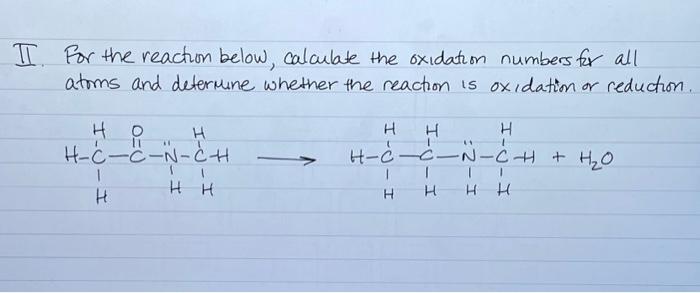 II. For the reaction below, calculate the oxidation numbers for all
atoms and determine whether the reaction is oxidation or reduction.
H O H H H H
H-C-C-N̈-C-H ⟶ H-C-C-N̈-C-H + H₂O
H H H H H H H